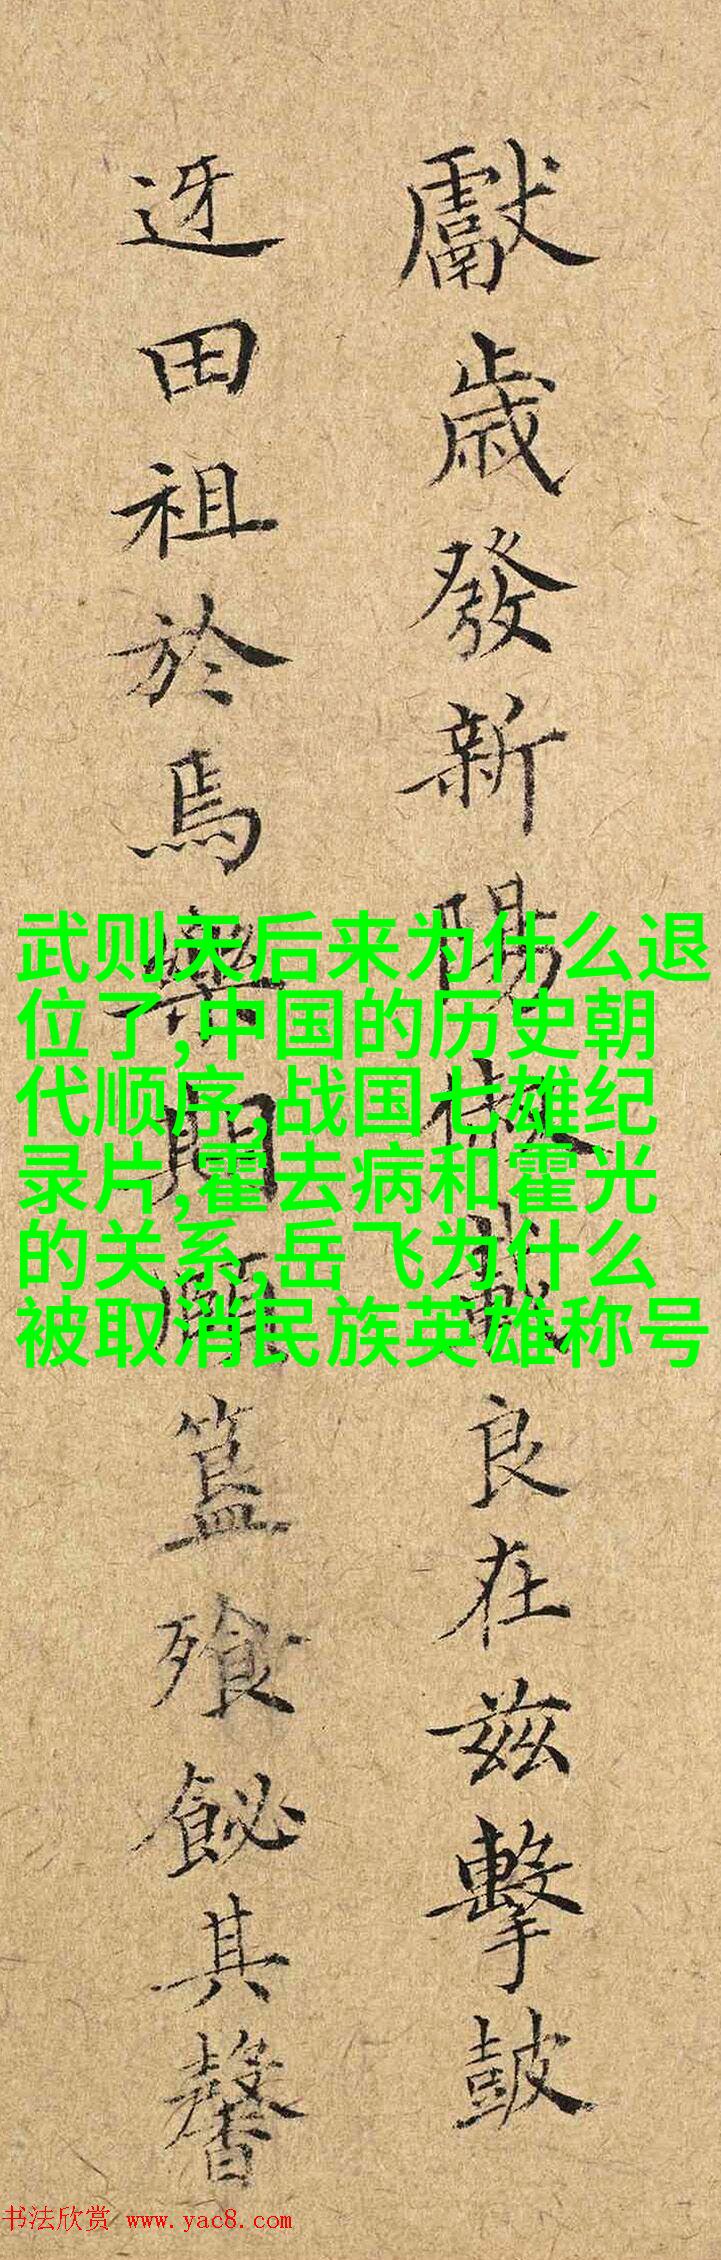 獻歲發新陽俶載良在兹擊鼓
迓田祖於焉樂期願簋飱飶其馨
武则天后来为什么退
位了,中国的历史朝
代顺序,战国七雄纪
录片,霍去病和霍光
的关系,岳飞为什么
被取消民族英雄称号
书法欣赏 www.yac8.com